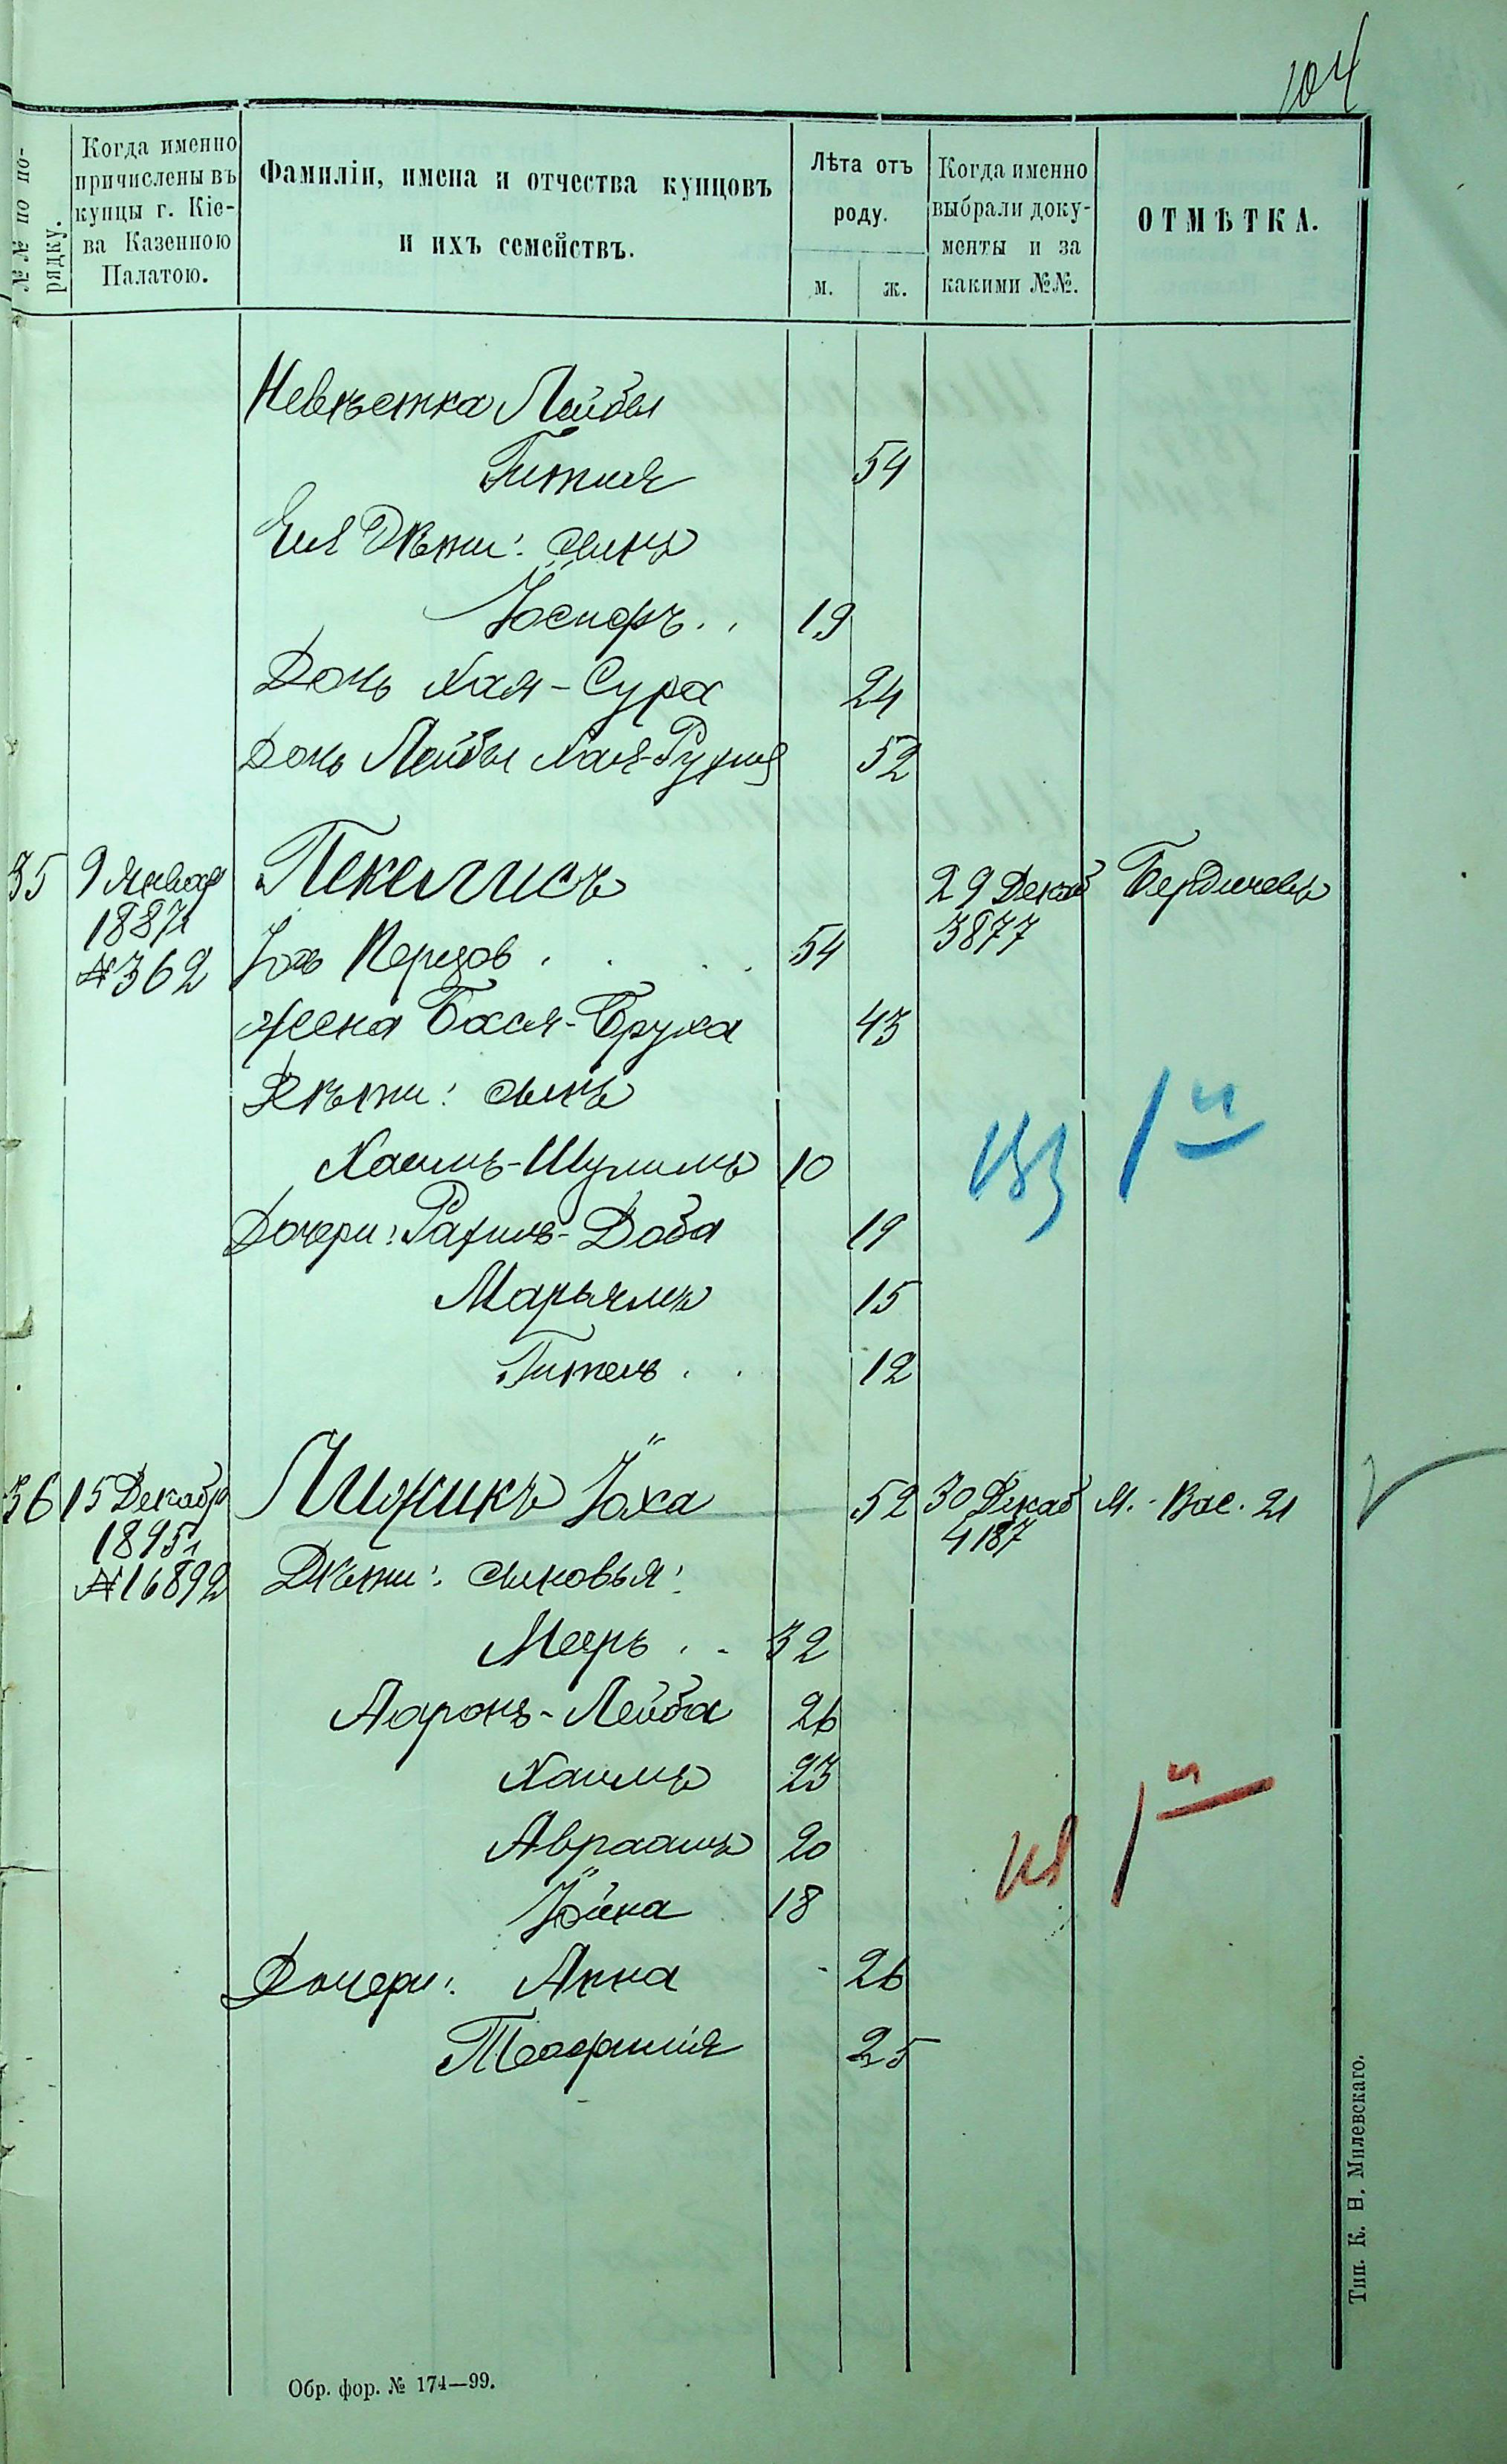 104
№№ по по-
рядку.
Когда именно
причислены въ
купцы г. Кіе-
ва Казенною
Палатою.
Фамиліи, имена и отчества купцовъ
и ихъ семействъ.
Лѣта отъ
роду.
м. ж.
Когда именно
выбрали доку-
менты и за
какими №№.
ОТМѢТКА.
Невѣстка Лейбы
Гитля 54
Ея Дѣти: сынъ
Іосифъ.. 19
Дочь Хая-Сура 24
Дочь Лейбы Хая-Рухля 52
35 9 Января Пекелисъ 29 Декаб Бердичевъ
1887г 3877
№362 Іось Перцов . . . . 54
жена Бася-Бруха 43
Дѣти: сынъ
Хаимъ-Шулимъ 10
Дочери: Рахиль-Доба 19
Марьямъ 15
Гитель . . 12
1й
36 15 Декабря Пижикъ Іоха 52 30 Декаб М.-Вас. 21
1895г 4187
№16892 Дѣти: сыновья:
Меерь . . 32
Ааронъ-Лейба 26
Хаимъ 23
Авраамъ 20
Іойна 18
1й
Дочери: Анна 26
Теофилія 25
Обр. фор. № 174—99.
Тип. К. Н. Милевскаго.